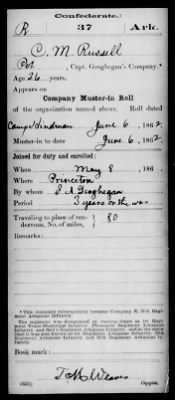 Confederate.
R 37 Ark.
C. M. Russell
Pvt, Capt. Geoghegan's Company.*
Age 26 years.
Appears on
Company Muster-in Roll
of the organization named above. Roll dated
Camp Hindman June 6, 1862.
Muster-in to date June 6, 1862.
Joined for duty and enrolled:
When May 8, 186 .
Where Princeton
By whom J A Geoghegan
Period 3 years or the war
Traveling to place of rendezvous, No. of miles, 80
Remarks:
*This company subsequently became Company
Arkansas Infantry.
Book mark:
T. M. Weaver
Copyist.